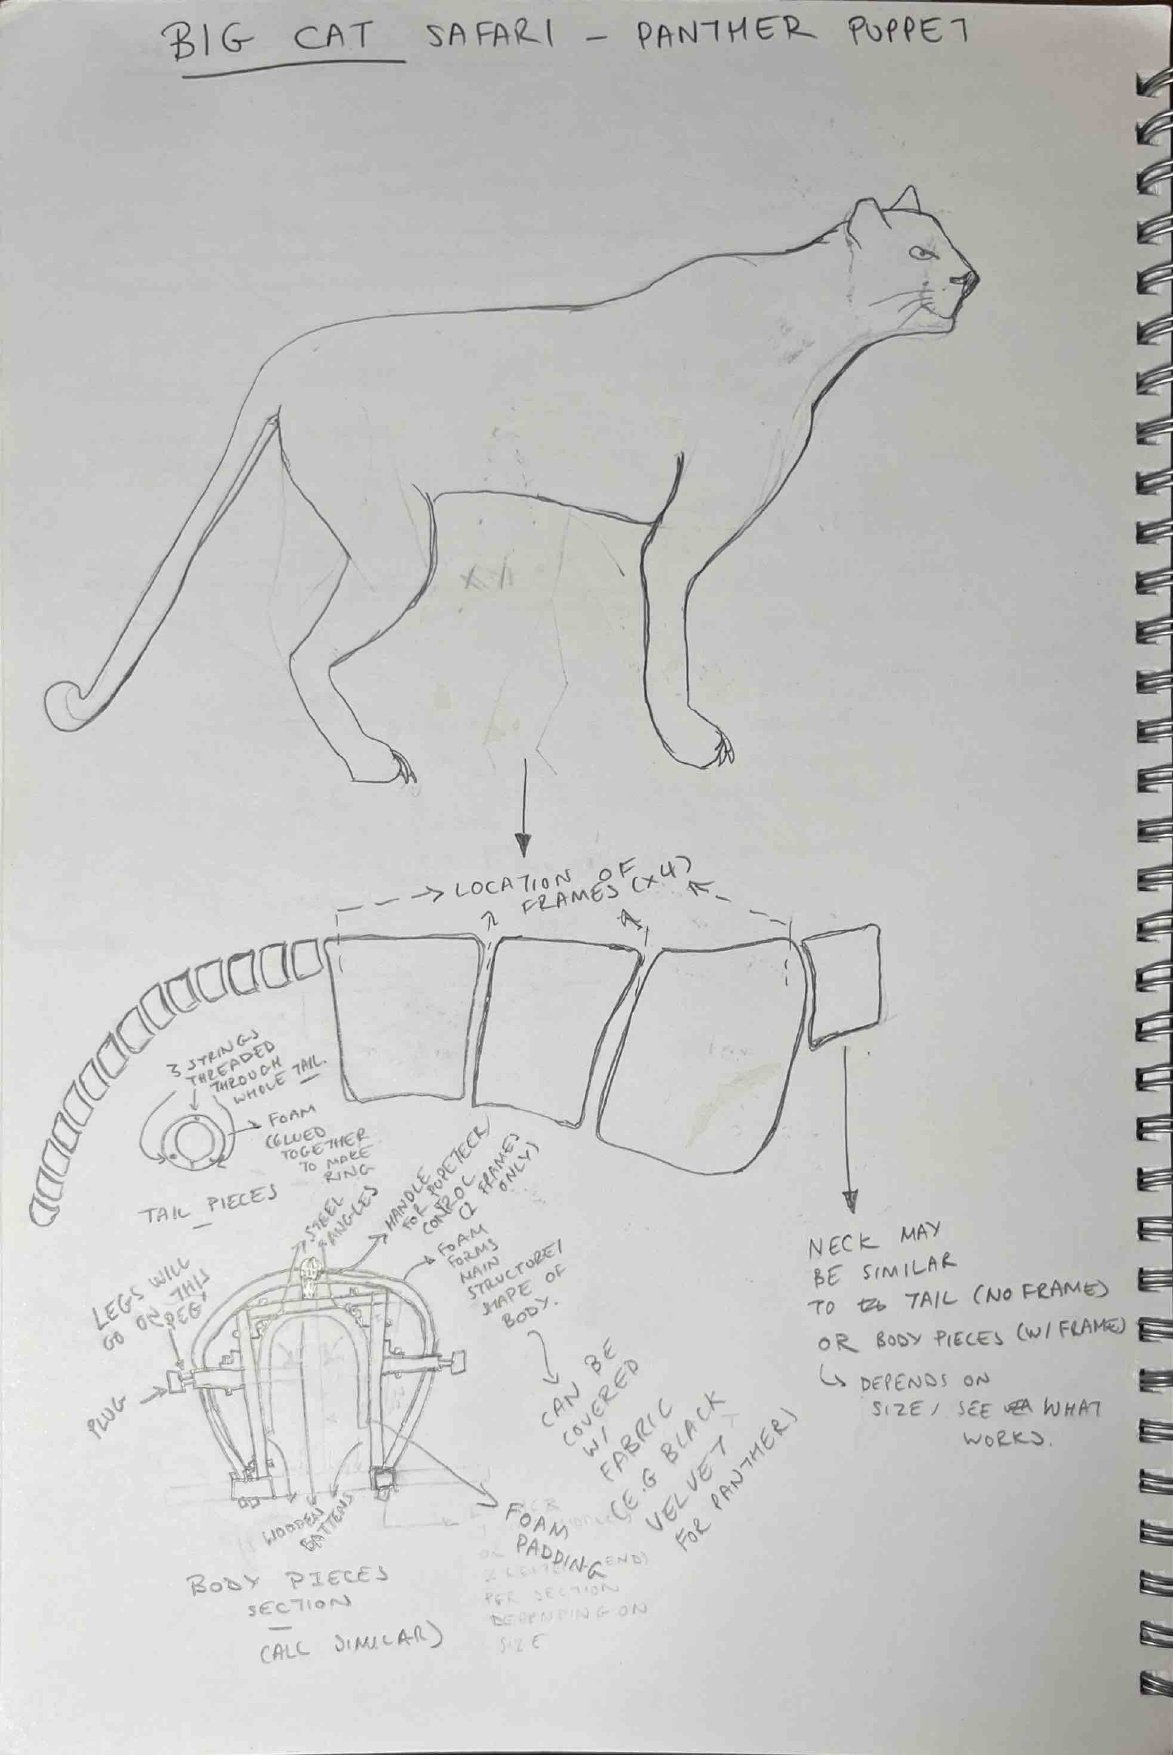 BIG CAT SAFARI - PANTHER PUPPET
LOCATION OF
FRAMES (x4)
3 STRINGS
THREADED
THROUGH
WHOLE TAIL.
FOAM
(GLUED
TOGETHER
TO MAKE
RING
TAIL PIECES
STEEL
ANGLES
HANDLE
FOR PUPETEER/
CONTROL
(2 FRAMES
ONLY)
FOAM
FORMS
MAIN
STRUCTURE/
SHAPE OF
BODY.
LEGS WILL
GO ON THIS
PEG
PLUG
CAN BE
COVERED
W/
FABRIC
(E.G BLACK
VELVET
FOR PANTHER)
WOODEN
BATTENS
FOAM
PADDING
PER SECTION
DEPENDING ON
SIZE
BODY PIECES
SECTION
(ALL SIMILAR)
NECK MAY
BE SIMILAR
TO TAIL (NO FRAME)
OR BODY PIECES (W/ FRAME)
DEPENDS ON
SIZE / SEE WHAT
WORKS.